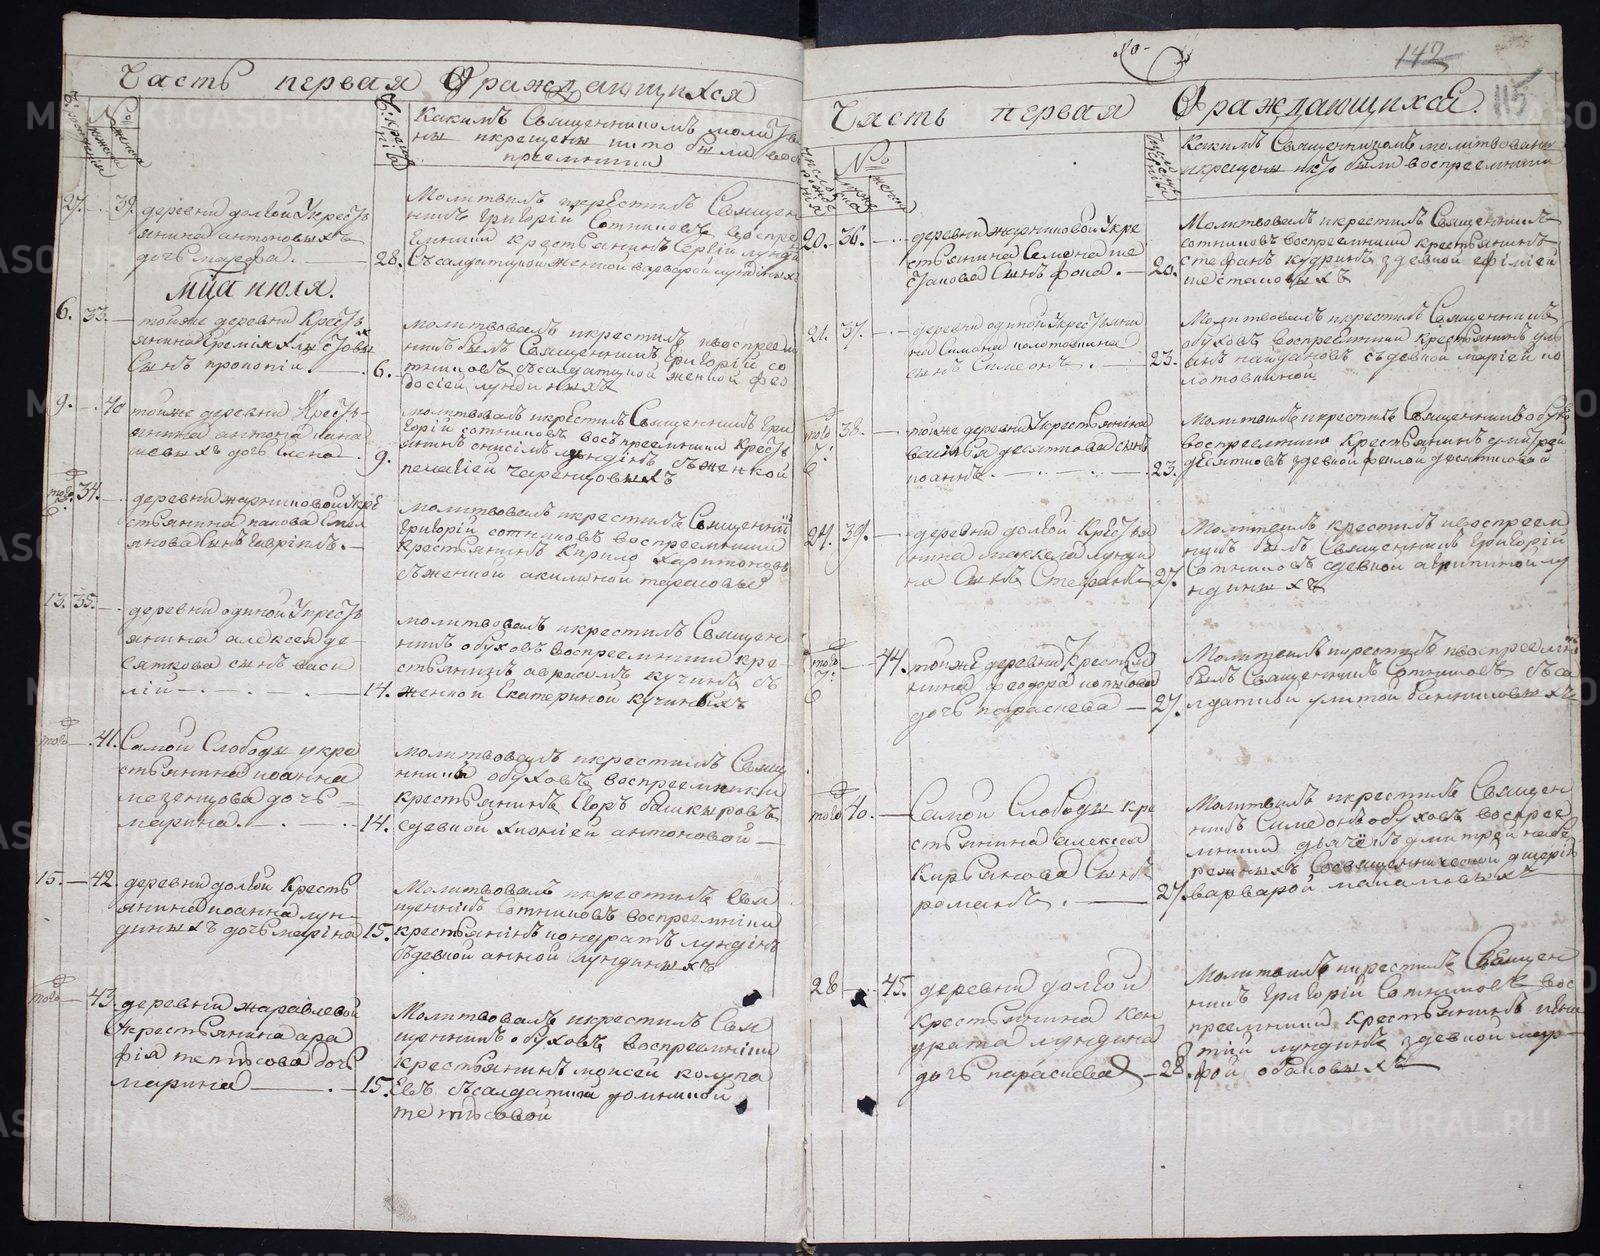 Часть первая Ораждающихся
№
Какимъ Священникомъ молитв
ны и крещены и кто были вос
преемники
27. 39. деревни долгой Укресть
янина антоновыхъ
дочь марфа.
28.
Молитвилъ икрестилъ Священ
никъ Григорій Сотниковъ воспре
емники крестьянинъ Сергій лунди
Съ салдатшкой женкой варварой лундиныхъ
Мца июля.
6. 33. тойже деревни Кресть
янина
Сынъ прокопіи
6.
молитвовалъ икрестилъ ивоспреем
никъ былъ Священникъ Григорій со
тниковъ съ салдатшкой женкой фео
досіей лундиныхъ
9. 40 тойже деревни Кресть
янина антона пана
шевыхъ дочь Елена
9.
молитвовалъ икрестилъ Священникъ Гри
горій сотниковъ воспреемники кресть
янинъ анисимъ лундінъ съ женкой
пелагіей черепцовыхъ
того 34. деревни жарниковой Укре
стьянина
сынъ Гавріилъ.
6
молитвовалъ икрестилъ Священни
Григорій сотниковъ воспреемники
крестьянинъ Кирило харитоновъ
съ женкой акилиной тарасовыхъ
13. 35. деревни одиной Укресть
янина алексея де
сяткова сынъ васи
лій
14.
молитвовалъ икрестилъ Священ
никъ обуховъ воспреемники кре
стьянинъ авраамъ кучинъ съ
женкой Екатериной кучиныхъ
того 41. Самой Слободы укре
стьянина иоанна
мезенцова дочь
марина.
14.
молитвовалъ икрестилъ Свящ
нникъ обуховъ воспреемники
крестьянинъ Егоръ башкыровъ
сдевкой хионіей антоновой
15. 42. деревни долгой Кресть
янина иоанна лун
диныхъ дочь марина
15.
Молитвовалъ икрестилъ Свя
щенникъ Сотниковъ воспреемники
крестьянинъ кондратъ лундинъ
съ девкой анной лундиныхъ
того 43. деревни жаравлевой
Укрестьянина ара
фія тетюсова дочь
марина
15.
Молитвовалъ икрестилъ Свя
щенникъ обуховъ воспреемники
крестьянинъ моисей колупа
евъ съ салдаткой
тетюсовой
142
115
Часть первая Ораждающихся.
№
Какимъ Священникомъ молитвованы
икрещены икто были воспреемники
20. 36. деревни жарниковой Укре
стьянина Семена ше
сталова Сынъ фока.
20.
Молитвовалъ икрестилъ Священникъ
сотниковъ воспреемники крестьянинъ
стефанъ кудринъ здевкой ефиміей
шесталовыхъ
21. 37. деревни одиной Укрестьяни
на Симона колотовкина
сынъ Симеонъ.
23.
Молитвовалъ икрестилъ Священникъ
обуховъ воспреемники крестьянинъ
найдановъ съ девкой маріей ко
лотовкиной
того 38. тойже деревни Укрестьянина
василья десяткова сынъ
иоаннъ
6
23.
Молитвилъ икрестилъ Священникъ обухо
воспреемники Крестьянинъ дмитрей
десятковъ здевкой феклой десятковой
24. 39. деревни долгой Крестья
нина
на Сынъ Стефанъ
27.
Молитвилъ крестилъ ивоспреем
никъ былъ Священникъ Григорій
Сотниковъ сдевкой агрипиной лу
ндиныхъ
того 44. тойже деревни Крестья
нина феодора коткова
дочь параскева
6
27.
Молитвилъ икрестилъ ивоспреемни
былъ Священникъ Сотниковъ съ са
лдаткой улитой банниковыхъ
того 40. Самой Слободы кре
стьянина алексея
Кирьянова Сынъ
романъ.
27.
Молитвилъ икрестилъ Священ
никъ Симеонъ обуховъ воспрее
мники дьячёкъ дмитрей
Сосвященнической дщерію
варварой
28 45. деревни долгой
Крестьянина Кон
драта лундина
дочь параскева
28.
Молитвилъ икрестилъ Священ
никъ Григорій Сотниковъ вос
преемники крестьянинъ игна
тий лундинъ здевкой мар
фой обаковыхъ